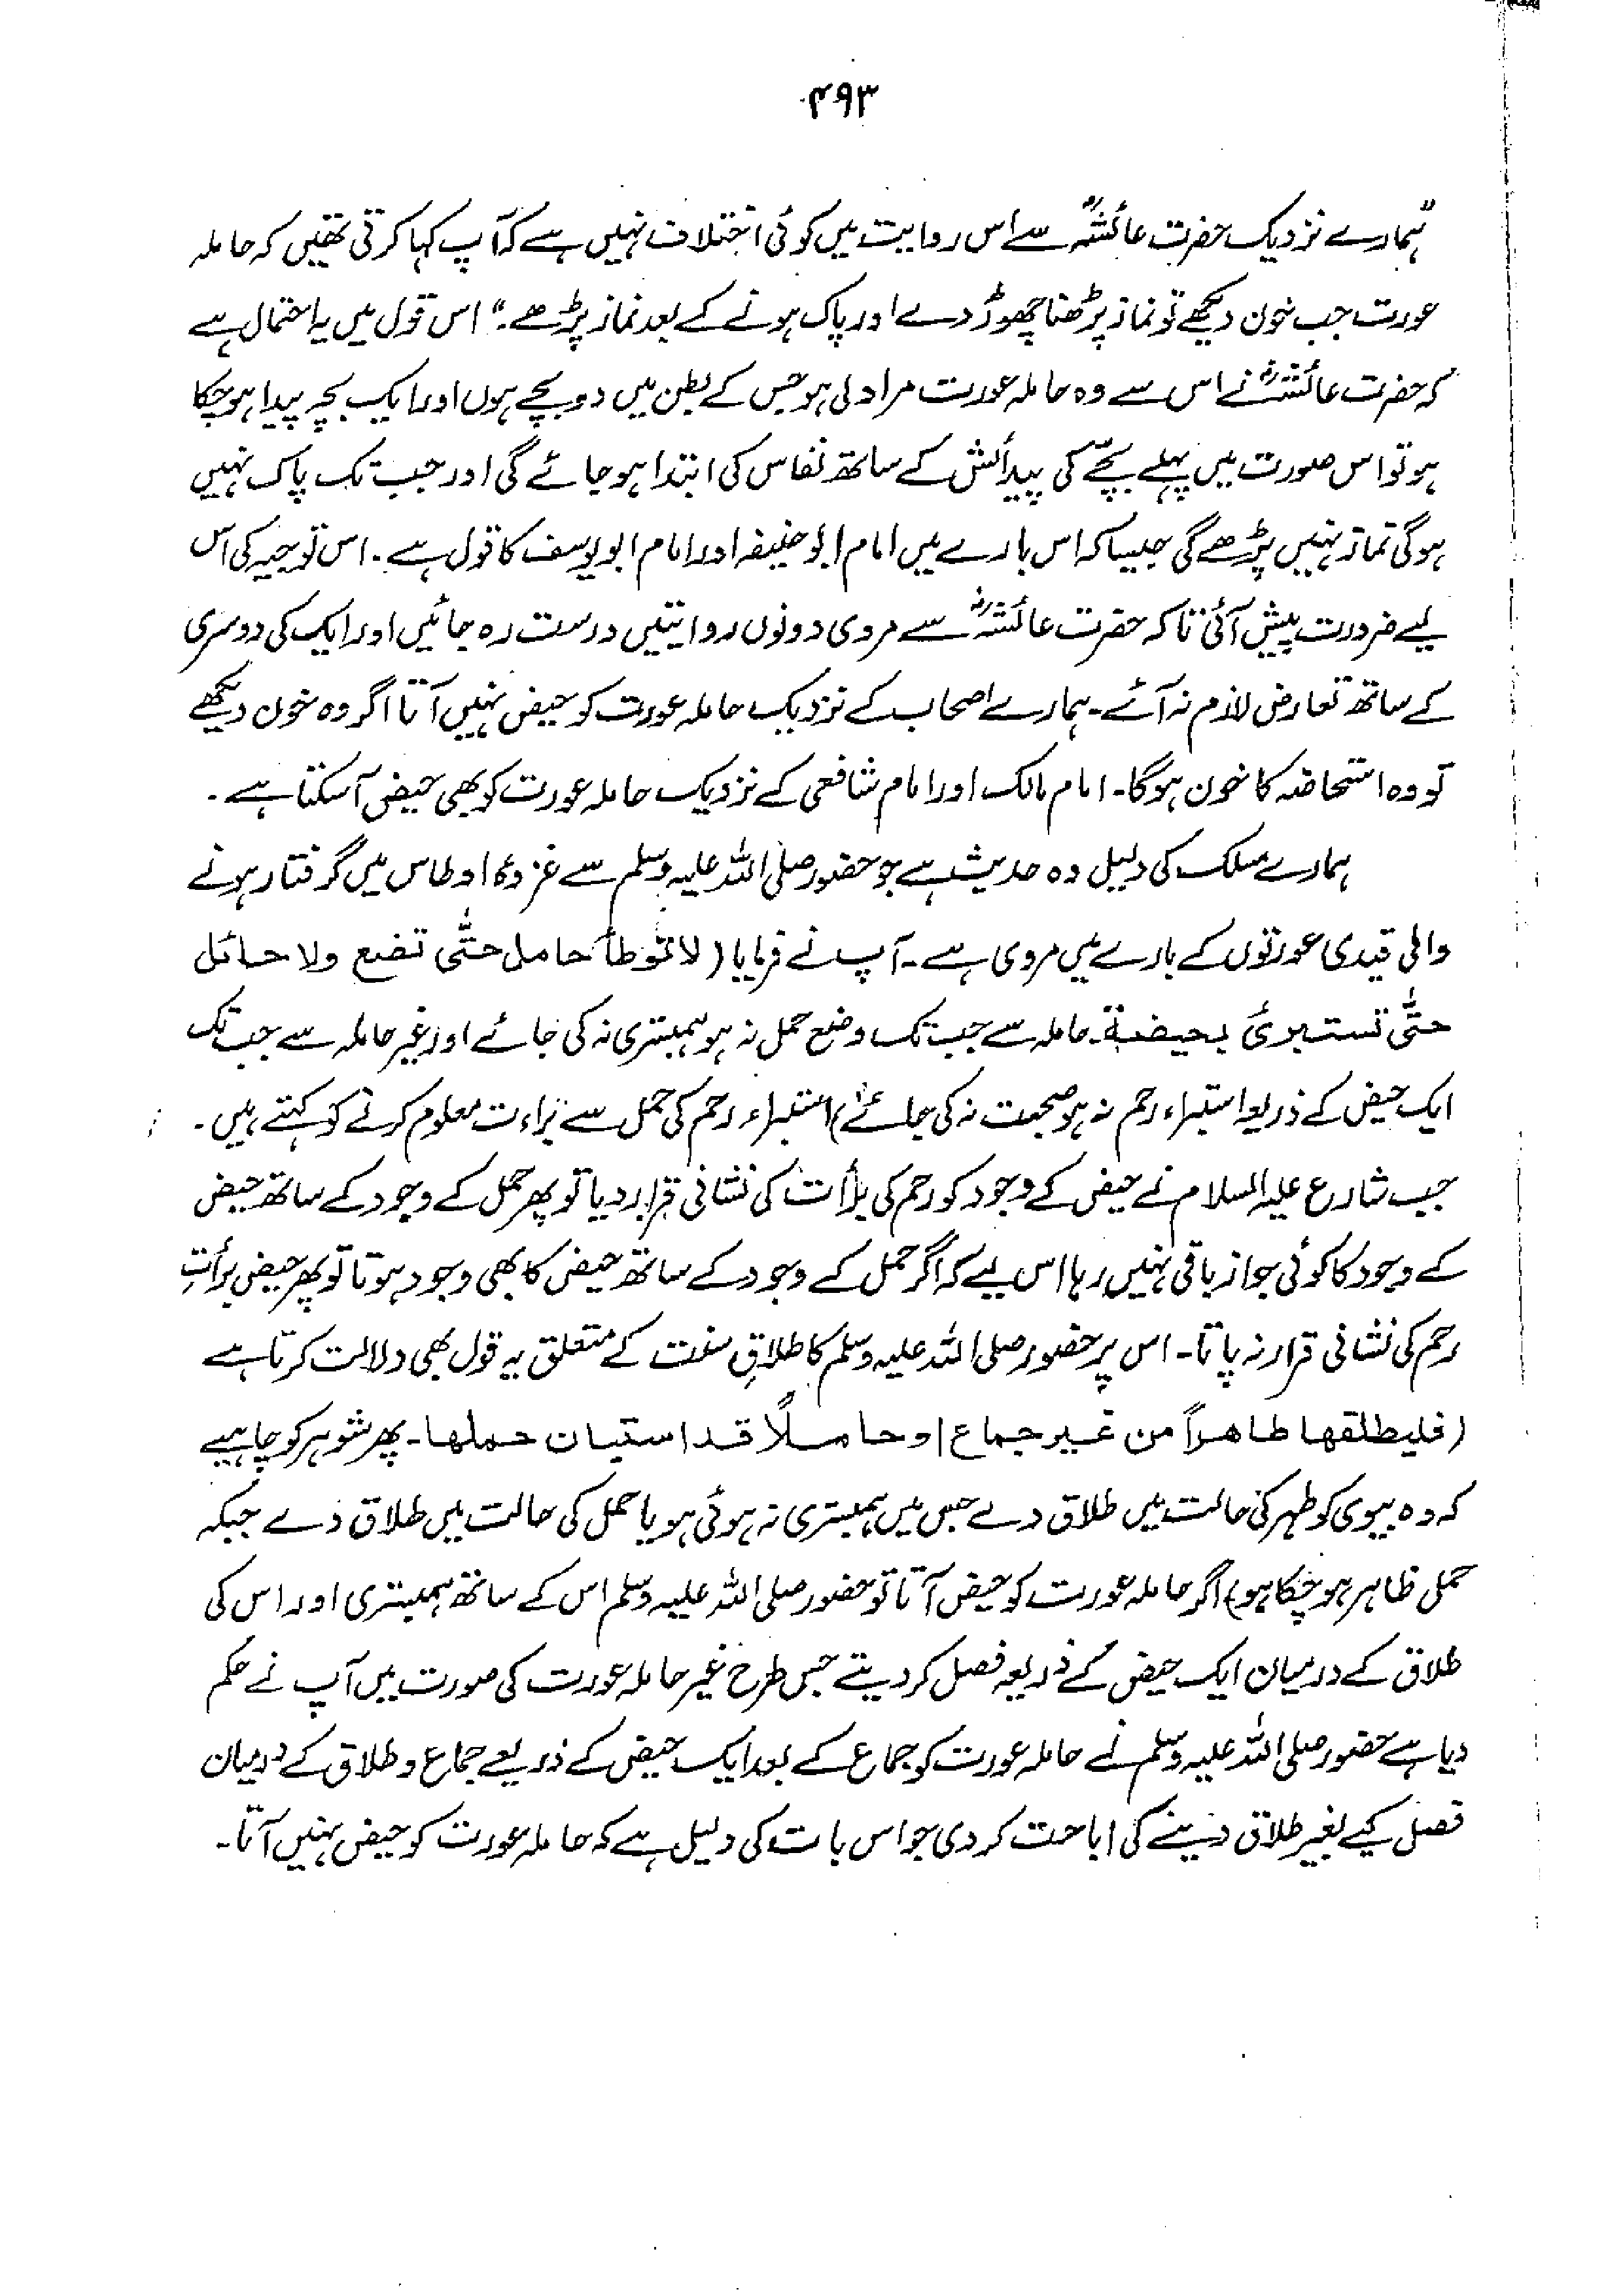 ۴۹۳
"ہمارے نزدیک حضرت عائشہؓ سے اس روایت میں کوئی اختلاف نہیں ہے کہ آپ کہا کرتی تھیں کہ حاملہ
عورت جب خون دیکھے تو نماز پڑھنا چھوڑ دے اور پاک ہونے کے بعد نماز پڑھے۔" اس قول میں یہ احتمال ہے
کہ حضرت عائشہؓ نے اس سے وہ حاملہ عورت مراد لی ہو جس کے بطن میں دو بچے ہوں اور ایک بچہ پیدا ہو چکا
ہو تو اس صورت میں پہلے بچّے کی پیدائش کے ساتھ نفاس کی ابتدا ہو جائے گی اور جب تک پاک نہیں
ہوگی نماز نہیں پڑھے گی جیسا کہ اس بارے میں امام ابو حنیفہ اور امام ابو یوسف کا قول ہے۔ اس توجیہ کی اس
لیے ضرورت پیش آئی تاکہ حضرت عائشہؓ سے مروی دونوں روایتیں درست رہ جائیں اور ایک کی دوسری
کے ساتھ تعارض لازم نہ آئے۔ ہمارے اصحاب کے نزدیک حاملہ عورت کو حیض نہیں آتا اگر وہ خون دیکھے
تو وہ استحاضہ کا خون ہوگا۔ امام مالک اور امام شافعی کے نزدیک حاملہ عورت کو بھی حیض آ سکتا ہے۔
ہمارے مسلک کی دلیل وہ حدیث ہے جو حضور صلی اللہ علیہ وسلم سے غزوۂ اوطاس میں گرفتار ہونے
والی قیدی عورتوں کے بارے میں مروی ہے۔ آپ نے فرمایا (لا توطأ حامل حتّٰی تضع ولا حائل
حتّٰی تستبرئ بحیضة۔ حاملہ سے جب تک وضع حمل نہ ہو ہمبستری نہ کی جائے اور غیر حاملہ سے جب تک
ایک حیض کے ذریعہ استبراء رحم نہ ہو صحبت نہ کی جائے) استبراء رحم کی حمل سے براءت معلوم کرنے کو کہتے ہیں۔
جب شارع علیہ السلام نے حیض کے وجود کو رحم کی برأت کی نشانی قرار دیا تو پھر حمل کے وجود کے ساتھ حیض
کے وجود کا کوئی جواز باقی نہیں رہا اس لیے کہ اگر حمل کے وجود کے ساتھ حیض کا بھی وجود ہوتا تو پھر حیض برأتِ
رحم کی نشانی قرار نہ پاتا۔ اس پر حضور صلی اللہ علیہ وسلم کا طلاقِ سنت کے متعلق یہ قول بھی دلالت کرتا ہے
(فلیطلقھا طاھراً من غیر جماع او حاملًا قد استبان حملھا۔ پھر شوہر کو چاہیے
کہ وہ بیوی کو طہر کی حالت میں طلاق دے جس میں ہمبستری نہ ہوئی ہو یا حمل کی حالت میں طلاق دے جبکہ
حمل ظاہر ہو چکا ہو) اگر حاملہ عورت کو حیض آتا تو حضور صلی اللہ علیہ وسلم اس کے ساتھ ہمبستری اور اس کی
طلاق کے درمیان ایک حیض کے ذریعہ فصل کر دیتے جس طرح غیر حاملہ عورت کی صورت میں آپ نے حکم
دیا ہے حضور صلی اللہ علیہ وسلم نے حاملہ عورت کو جماع کے بعد ایک حیض کے ذریعے جماع و طلاق کے درمیان
فصل کیے بغیر طلاق دینے کی اباحت کر دی جو اس بات کی دلیل ہے کہ حاملہ عورت کو حیض نہیں آتا۔